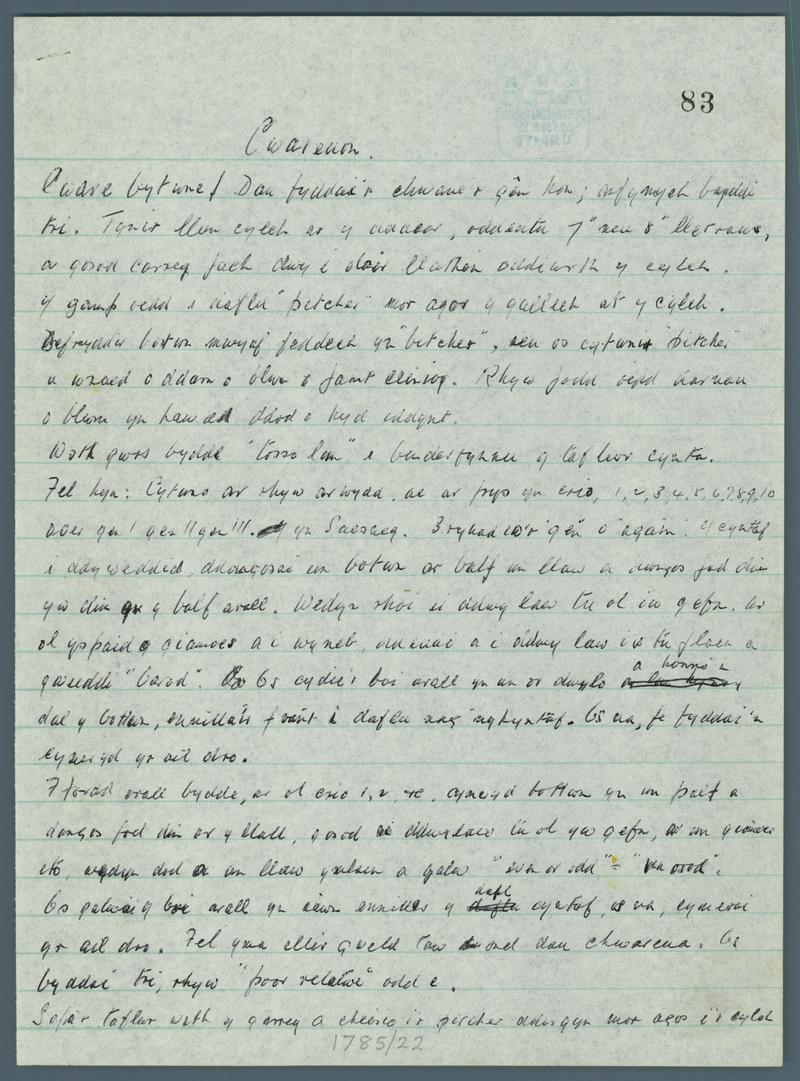 83
Cwareuon.
Cware bytwne! Dau fyddai'r chwaer gên hon; anfynych byddai
tri. Tynir llun cylch ar y ddaear, oddeutu 7" neu 8" lletraws,
a gosod carreg fach dwy i dair llathen oddiwrth y cylch.
Y gamp oedd i daflu "pitcher" mor agos y gallech at y cylch.
botwn mwyaf feddech yn "bitcher", neu os cytunir "pitcher"
u wnaed o ddarn o blwm o faint ceiniog. Rhyw fodd oedd darnau
o blwm yn hawdd dod o hyd iddynt.
Wrth gwrs byddd "tosso lan" i benderfynnu y taflwr cynta.
Fel hyn: Cytuno ar rhyw arwydd, ac ar frys yn crio, 1, 2, 3, 4, 5, 6, 7, 8, 9, 10
over gen! gen!! gen!!!. yn Saesneg. Byrhad o'r gên o again. Y cyntaf
i ddyweddid, ddangosai un botwn ar balf un llaw a dangos fod dim
yw dim yn y balf arall. Wedyn rhoi ei ddwy law tu ol iw gefn. ar
ol yspaid o giamocs a i wyneb, ddeuai a i ddwy law i'r tu flaen a
gweiddi "barod". Os cydie'r boi arall yn un or dwylo a honno'n
dal y botwn, ennillai'r fraint i daflu yn gyntaf. Os na, fe fyddai'n
cymeryd yr ail dro.
Ffordd arall bydde, ar ol crio 1, 2, etc, cymeryd bottwn yn un palf a
dangos fod dim ar y llall, gosod ei ddwylaw tu ol yw gefn, ar un giamocs
etc, wedyn dod a un llaw ymlaen a galw "even or odd" = "una odd".
Os galwai y boi arall yn iawn ennillai y dafl cyntaf, os na, cymerai
yr ail dro. Fel yma ellir gweld taw dim ond dau chwarena. Os
byddai tri, rhyw "poor relative" odd e.
Safai'r taflwr wrth y garreg a cheisio i'r pitcher ddisgyn mor agos i'r cylch
1785/22